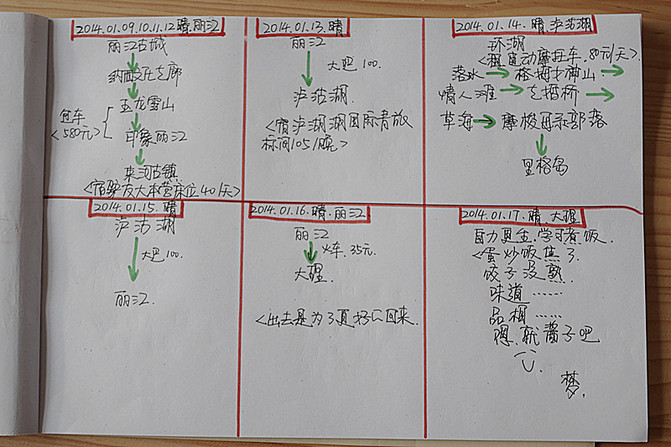 2014.01.09.10.11.12.晴.丽江
丽江古城
玉龙雪山
包车
<580元>
印象丽江
束河古镇
床位40/天>
2014.01.13.晴
丽江
大巴100.
泸沽湖.
<宿泸沽湖湖畔国际青旅
标间105/晚>
2014.01.14.晴.泸沽湖
环湖
<租电动摩托车.80元/天>
落水→格姆女神山→
情人滩→走婚桥→
草海→摩梭母系部落
里格岛
2014.01.15.晴
泸沽湖
大巴100.
丽江.
2014.01.16.晴.丽江
丽江
火车.35元.
大理.
<出去是为了更好的回来.
2014.01.17.晴.大理
自力更生.学习煮饭.
<蛋炒饭焦了.
饺子没熟
味道……
品相……
嘿.就酱子吧
梦.